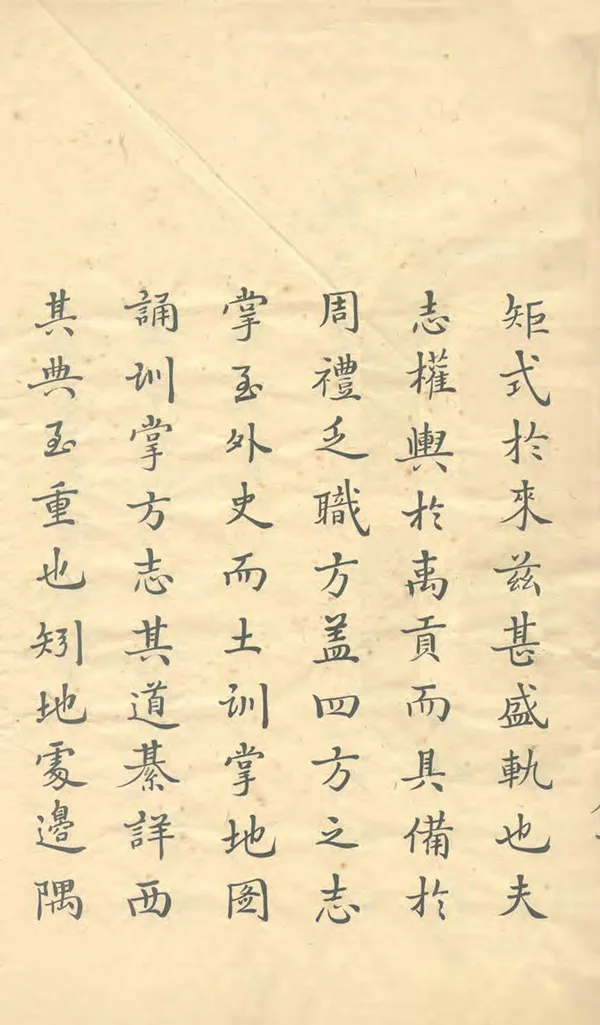 矩式於來茲甚盛軌也夫
志權輿於禹貢而具備於
周禮之職方盖四方之志
掌至外史而土訓掌地圖
誦訓掌方志其道綦詳而
其典至重也矧地處邊隅